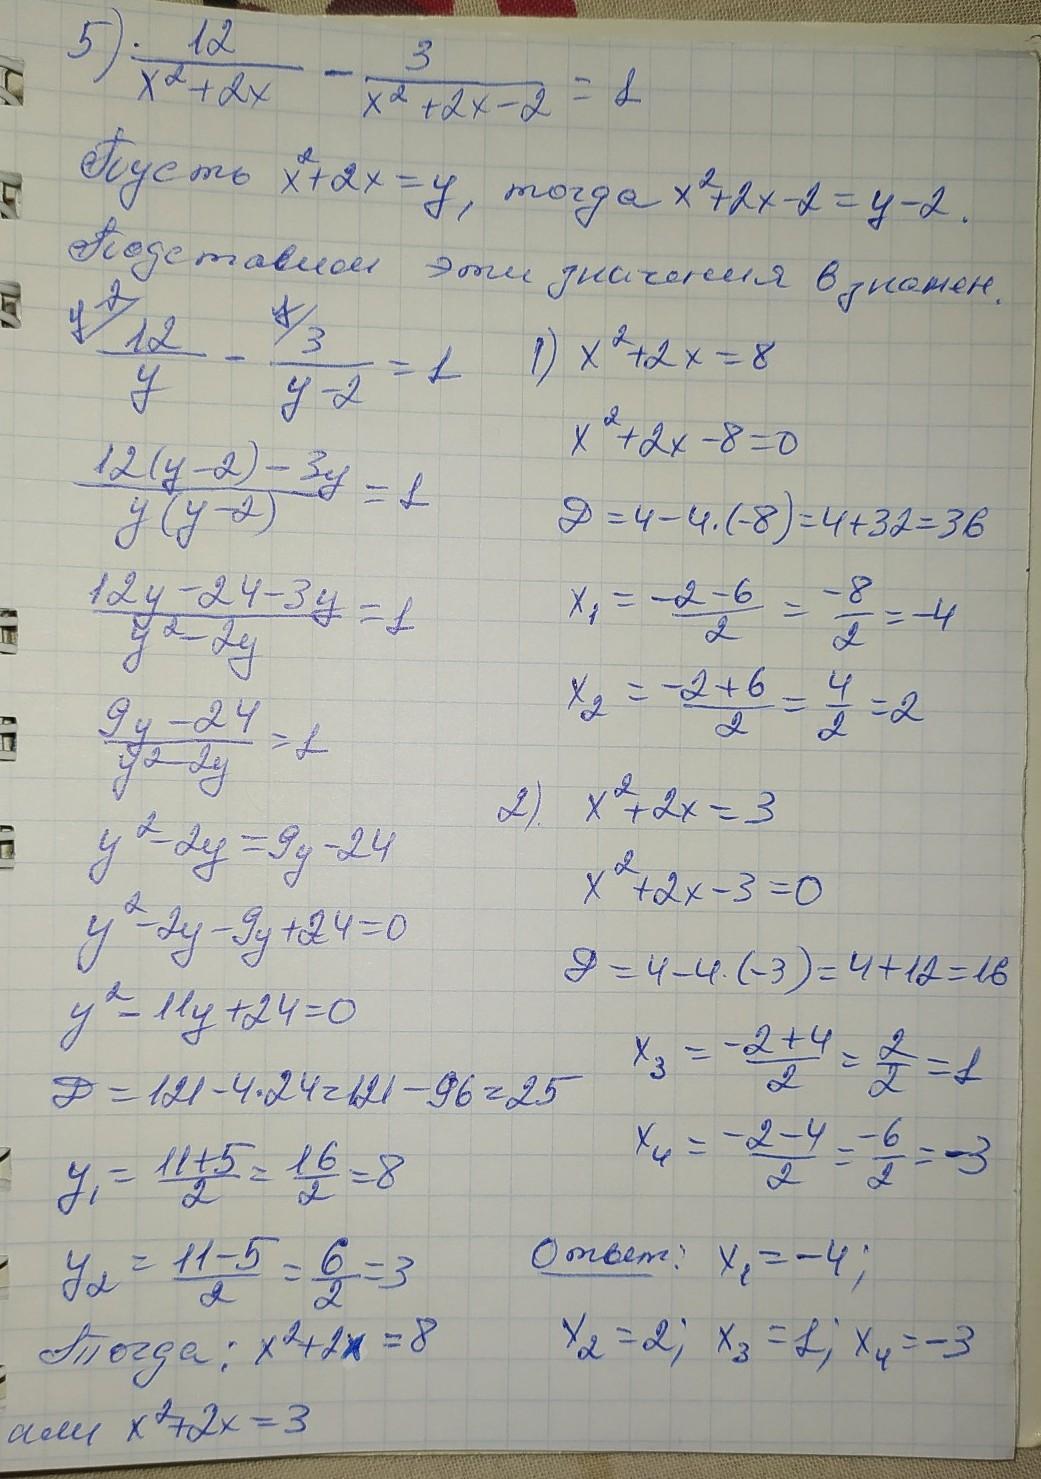 5) 12/(x²+2x) - 3/(x²+2x-2) = 1
Пусть x²+2x=y, тогда x²+2x-2=y-2.
Подставим эти значения в знамен.
12/y - 3/(y-2) = 1
(12(y-2)-3y)/(y(y-2)) = 1
(12y-24-3y)/(y²-2y) = 1
(9y-24)/(y²-2y) = 1
y²-2y=9y-24
y²-2y-9y+24=0
y²-11y+24=0
D=121-4·24=121-96=25
y₁ = (11+5)/2 = 16/2 = 8
y₂ = (11-5)/2 = 6/2 = 3
Тогда: x²+2x=8
или x²+2x=3
1) x²+2x=8
x²+2x-8=0
D=4-4·(-8)=4+32=36
x₁ = (-2-6)/2 = -8/2 = -4
x₂ = (-2+6)/2 = 4/2 = 2
2). x²+2x=3
x²+2x-3=0
D=4-4·(-3)=4+12=16
x₃ = (-2+4)/2 = 2/2 = 1
x₄ = (-2-4)/2 = -6/2 = -3
Ответ: x₁=-4;
x₂=2; x₃=1; x₄=-3